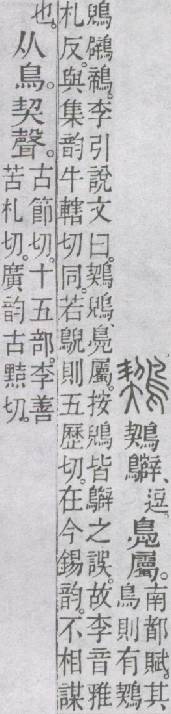 𪃈𪇵、逗。鳧屬。南都賦。其
鳥則有𪃈
鶂鸊鶙。李引說文曰。𪃈鶂、鳧屬。按鶂皆𪇵之誤。故李音雅
札反。與集韵牛轄切同。若鶂則五歷切。在今錫韵。不相謀
也。从鳥。契聲。古節切。十五部。李善
苦札切。廣韵古黠切。